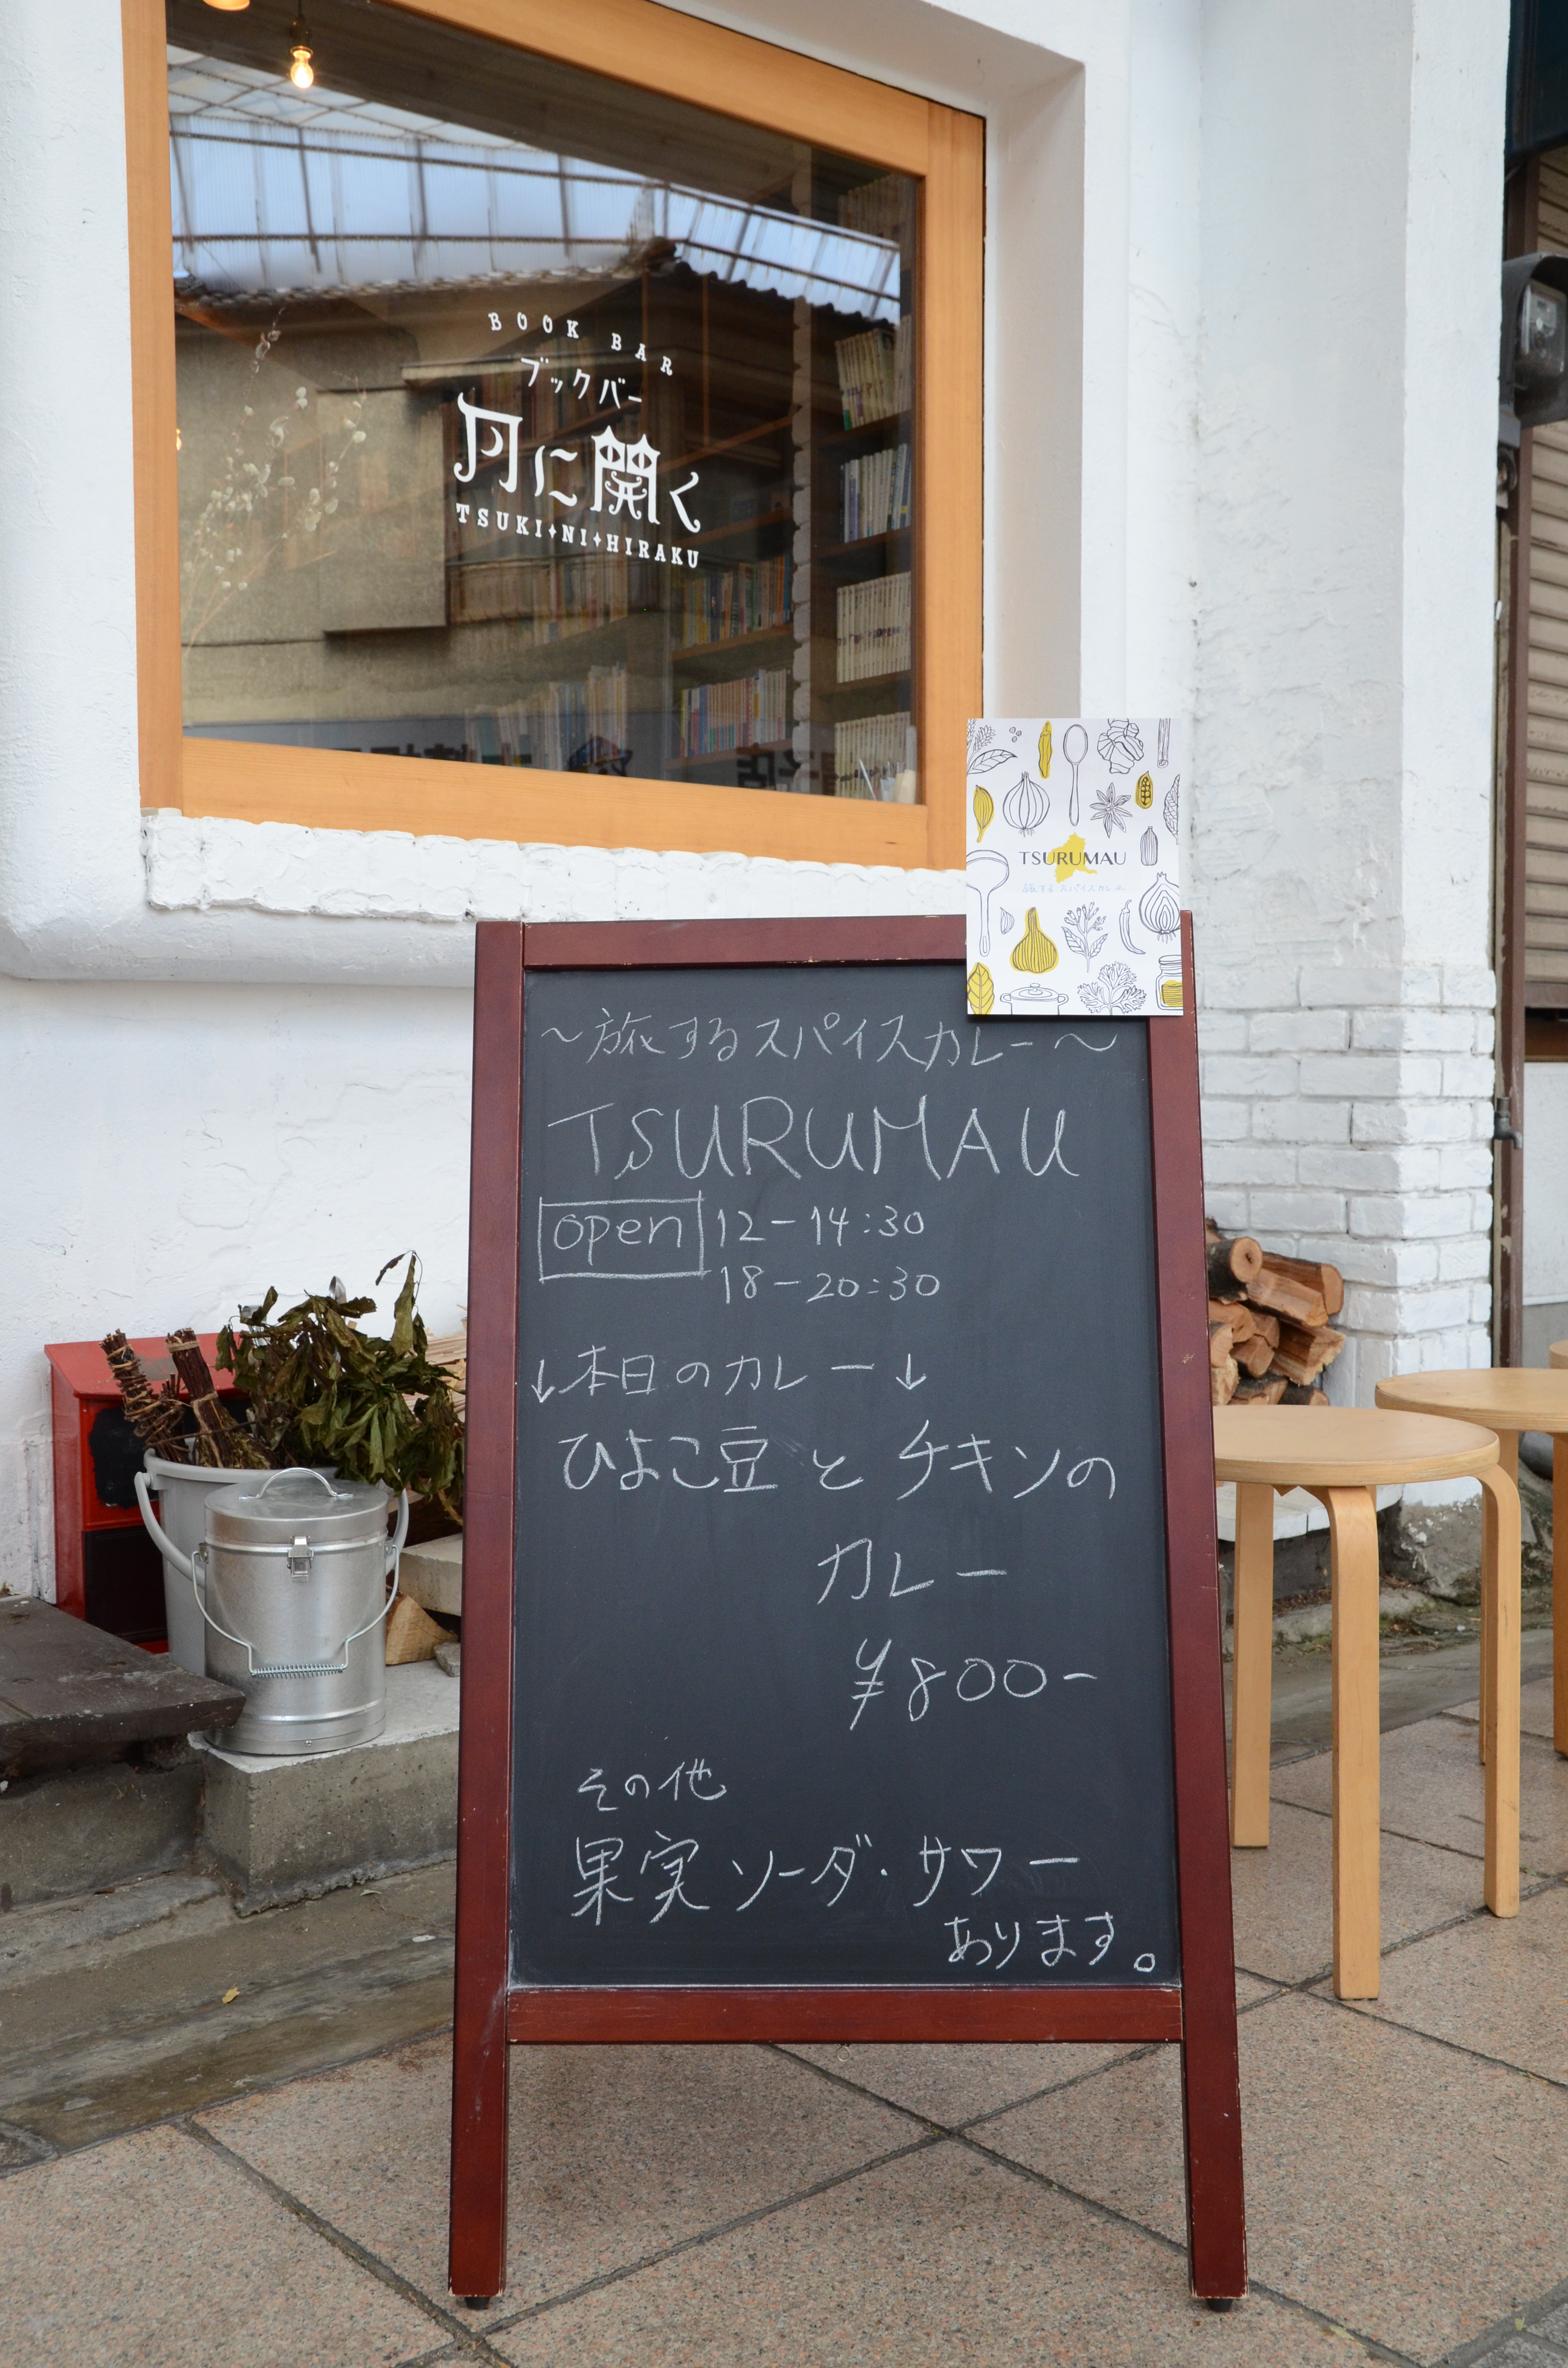 BOOK BAR
ブックバー
月に開く
TSUKI✦NI✦HIRAKU
TSURUMAU
旅するスパイスカレー
～旅するスパイスカレー～
TSURUMAU
open 12-14:30
18-20:30
↓本日のカレー↓
ひよこ豆とチキンの
カレー
¥800-
その他
果実ソーダ・サワー
あります。